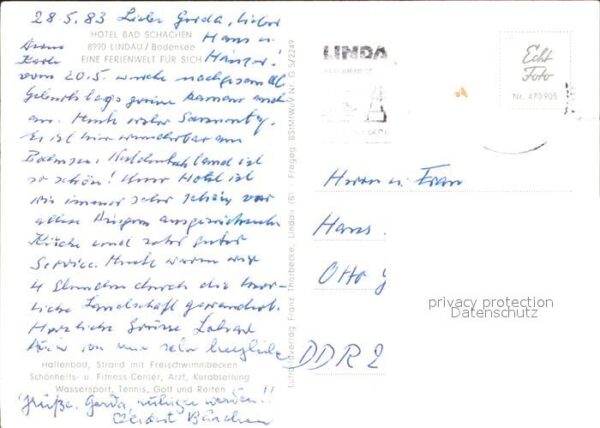 28.5.83 Liebe Gerda, lieber
HOTEL BAD SCHACHEN
Hans u.
8990 LINDAU/Bodensee
EINE FERIENWELT FÜR SICH
Karte
vom 20.5 wurde nachgesandt
Geburtstags
an. Heute
Es ist hier wunderbar am
Bodensee.
so schön! Unser Hotel ist
wie immer sehr schön vor
allen Dingen ausgezeichnete
Küche und sehr guter
Service. Heute waren wir
4 Stunden durch die herr-
liche Landschaft gewandert.
Herzliche Grüsse
von mir sehr herzliche
Hallenbad, Strand mit Freischwimmbecken
Schönheits- u. Fitness Center, Arzt, Kurabteilung
Wassersport, Tennis, Golf und Reiten
Grüße. Gerda, ruhiger werden!!
Lindauverlag Franz Thorbecke, Lindau (B) · Freigeg. BStMfWuV Nr. G 5/2249
LINDA
Echt
Foto
Nr. 470 905
Herrn u. Frau
Hans
Otto
DDR
privacy protection
Datenschutz